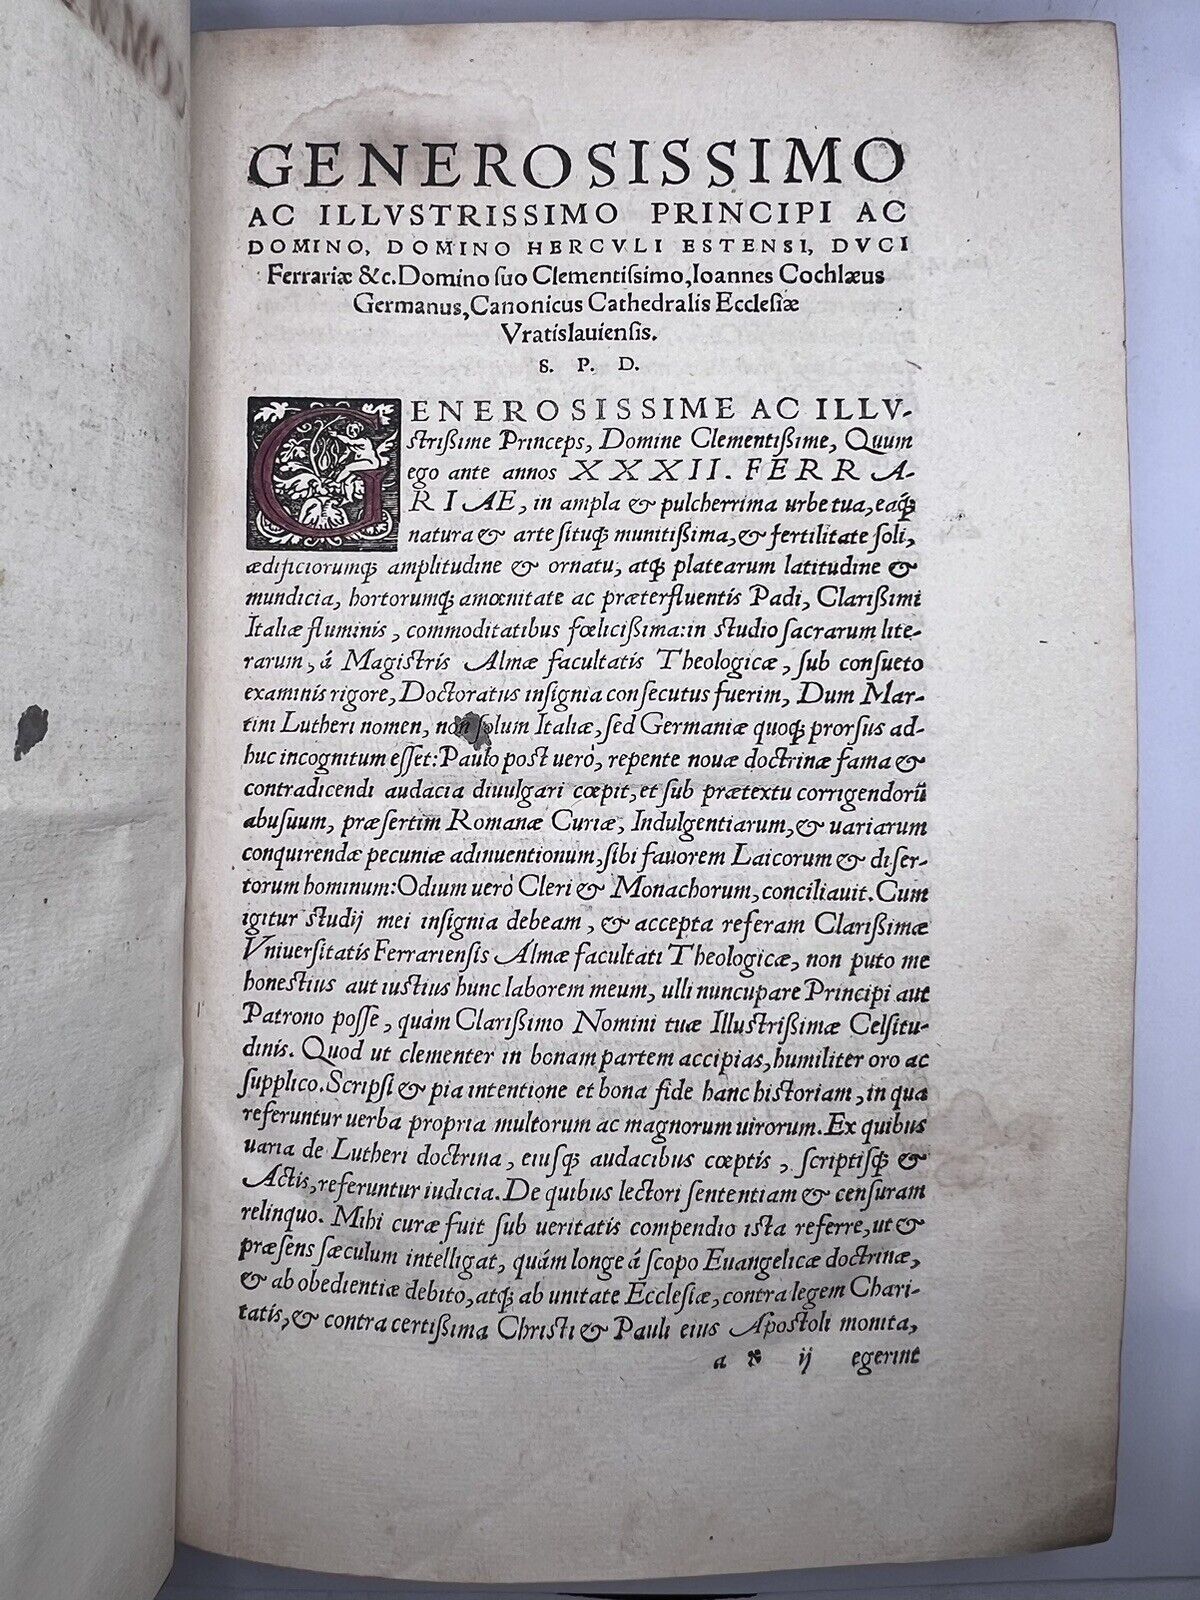 GENEROSISSIMO
AC ILLVSTRISSIMO PRINCIPI AC
DOMINO, DOMINO HERCVLI ESTENSI, DVCI
Ferrariæ &c. Domino ſuo Clementiſsimo, Ioannes Cochlæus
Germanus, Canonicus Cathedralis Eccleſiæ
Vratiſlauienſis.
S. P. D.
GENEROSISSIME AC ILLV-
ſtrißime Princeps, Domine Clementißime, Quum
ego ante annos XXXII. FERRA-
RIAE, in ampla & pulcherrima urbe tua, eaq́;
natura & arte ſituq; munitißima, & fertilitate ſoli,
ædificiorumq; amplitudine & ornatu, atq; platearum latitudine &
mundicia, hortorumq; amœnitate ac præterfluentis Padi, Clarißimi
Italiæ fluminis, commoditatibus fœlicißima: in ſtudio ſacrarum lite-
rarum, á Magiſtris Almæ facultatis Theologicæ, ſub conſueto
examinis rigore, Doctoratus inſignia conſecutus fuerim, Dum Mar-
tini Lutheri nomen, non ſolum Italiæ, ſed Germaniæ quoq; prorſus ad-
huc incognitum eſſet: Paulo poſt uerò, repente nouæ doctrinæ fama &
contradicendi audacia diuulgari cœpit, et ſub prætextu corrigendorū
abuſuum, præſertim Romanæ Curiæ, Indulgentiarum, & uariarum
conquirendæ pecuniæ adinuentionum, ſibi fauorem Laicorum & diſer-
torum hominum: Odium uerò Cleri & Monachorum, conciliauit. Cum
igitur ſtudij mei inſignia debeam, & accepta referam Clarißimæ
Vniuerſitatis Ferrarienſis Almæ facultati Theologicæ, non puto me
honeſtius aut iuſtius hunc laborem meum, ulli nuncupare Principi aut
Patrono poſſe, quám Clarißimo Nomini tuæ Illuſtrißimæ Celſitu-
dinis. Quod ut clementer in bonam partem accipias, humiliter oro ac
ſupplico. Scripſi & pia intentione et bona fide hanc hiſtoriam, in qua
referuntur uerba propria multorum ac magnorum uirorum. Ex quibus
uaria de Lutheri doctrina, eiuſq; audacibus cœptis, ſcriptiſq; &
Actis, referuntur iudicia. De quibus lectori ſententiam & cenſuram
relinquo. Mihi curæ fuit ſub ueritatis compendio iſta referre, ut &
præſens ſæculum intelligat, quám longe á ſcopo Euangelicæ doctrinæ,
& ab obedientiæ debito, atq; ab unitate Eccleſiæ, contra legem Chari-
tatis, & contra certißima Chriſti & Pauli eius Apoſtoli monita,
a ij egerint